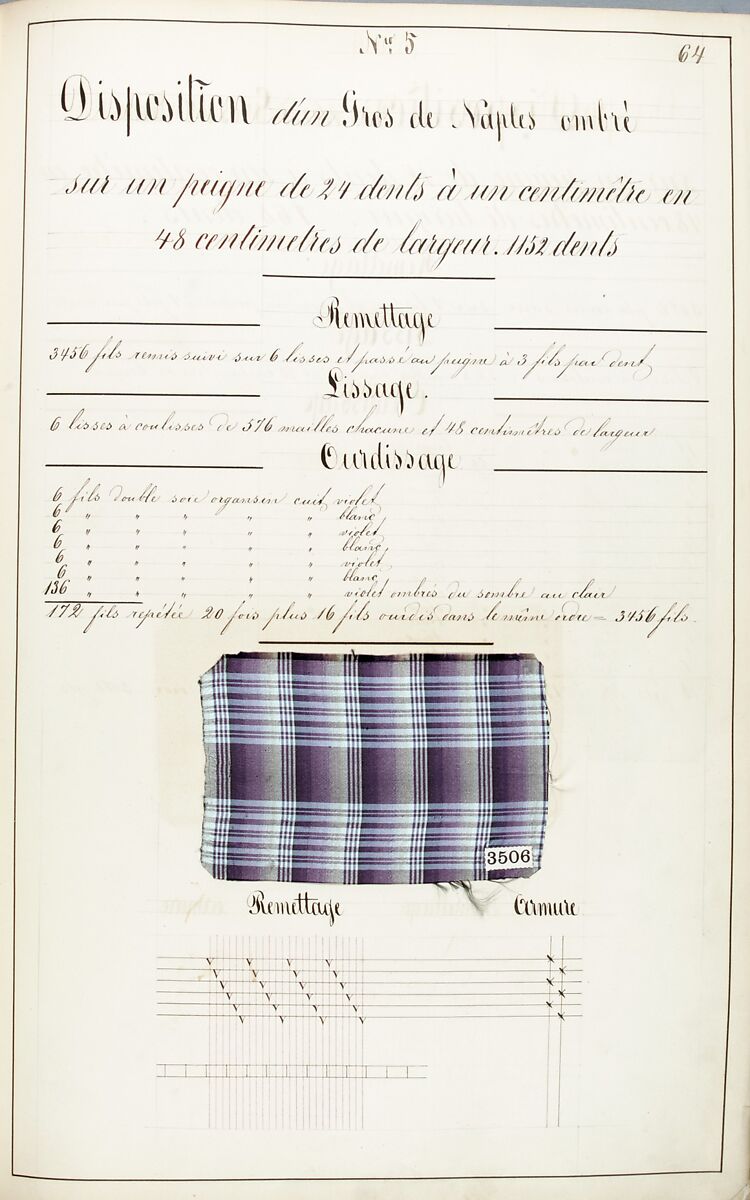 Nº 5
64
Disposition d'un Gros de Naples ombré
sur un peigne de 24 dents à un centimêtre en
48 centimetres de largeur. 1152 dents
Remettage
3456 fils remis suivi sur 6 lisses et passé au peigne à 3 fils par dent
Lissage.
6 lisses à coulisses de 576 mailles chacune et 48 centimêtres de largeur
Ourdissage
6 fils double soie organsin cuit violet
6 " " " " " blanc
6 " " " " " violet
6 " " " " " blanc
6 " " " " " violet
6 " " " " " blanc
136 " " " " " violet ombrés du sombre au clair
172 fils repétée 20 fois plus 16 fils ourdis dans le même ordre = 3456 fils.
3506
Remettage
Armure